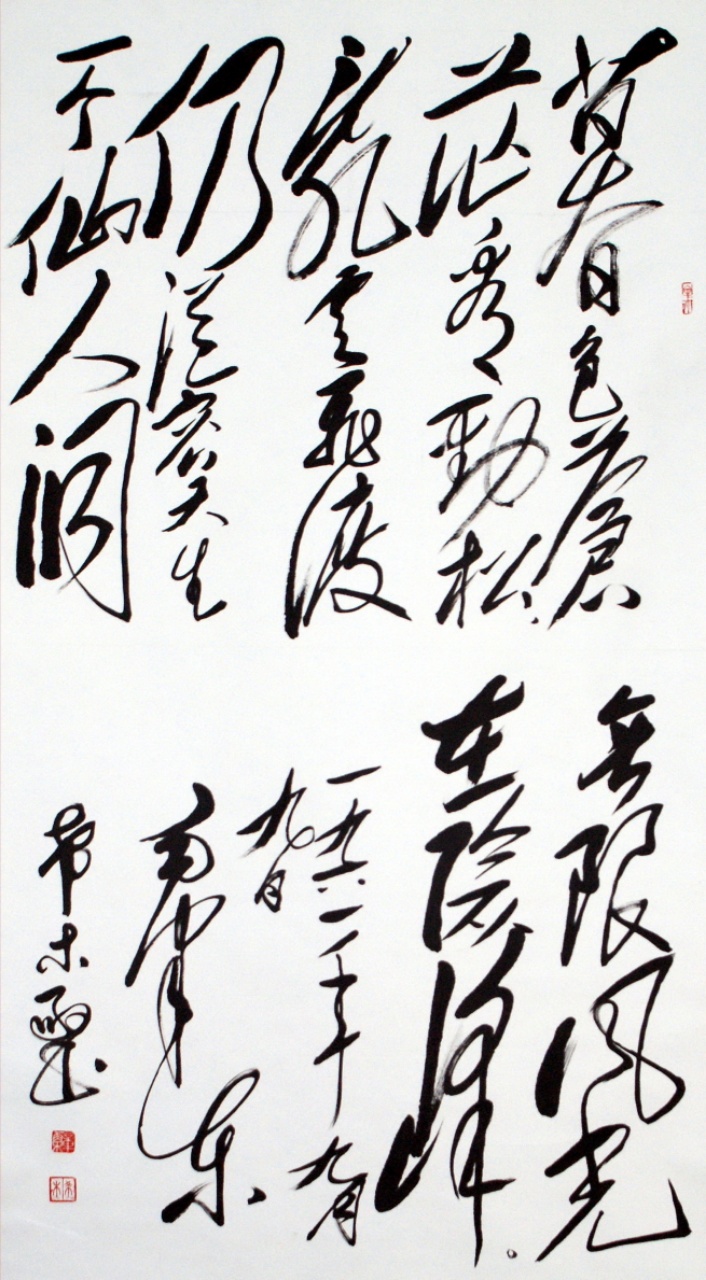 暮色蒼
茫看劲松
乱云飞渡
仍從容天生
一个仙人洞
無限风光
在险峰。
一九六一年九月
九日
毛泽东